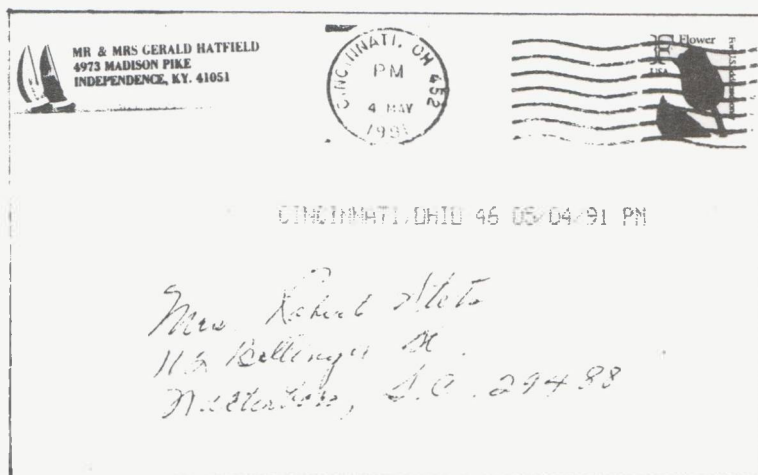 MR & MRS GERALD HATFIELD
4973 MADISON PIKE
INDEPENDENCE, KY. 41051
CINCINNATI, OH 452
PM
4 MAY
1991
F Flower
USA
CINCINNATI, OHIO 46 05/04/91 PM
Mrs
112 St
Walterboro, S.C. 29488